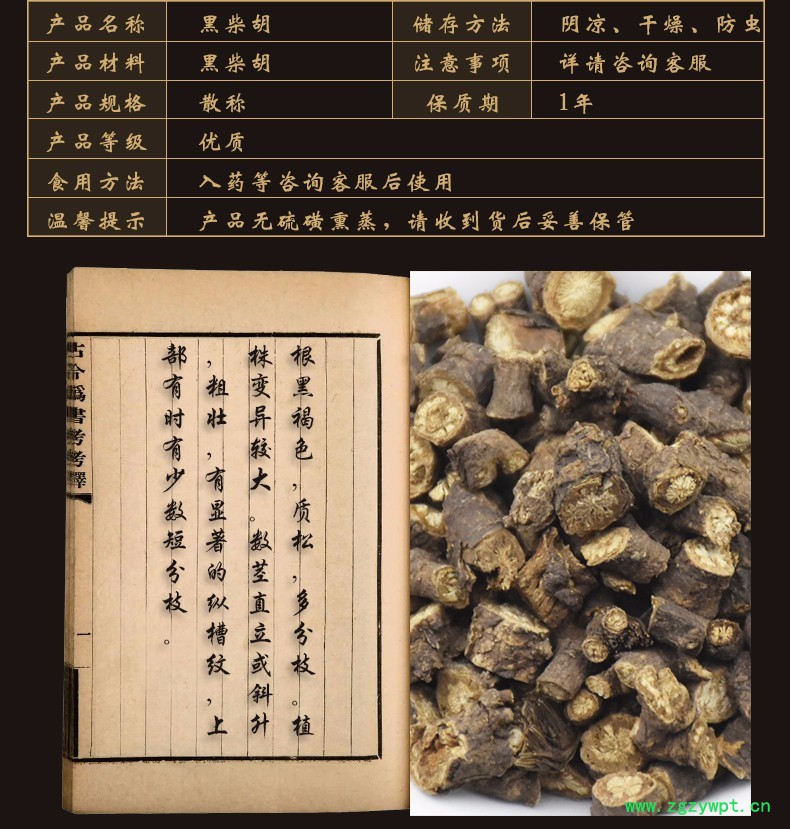 产品名称 黑柴胡 储存方法 阴凉、干燥、防虫
产品材料 黑柴胡 注意事项 详请咨询客服
产品规格 散称 保质期 1年
产品等级 优质
食用方法 入药等咨询客服后使用
温馨提示 产品无硫磺熏蒸，请收到货后妥善保管
根黑褐色，质松，多分枝。植
株变异较大。数茎直立或斜升
，粗壮，有显著的纵槽纹，上
部有时有少数短分枝。
古今伪書考考釋
一
www.zgzywpt.cn